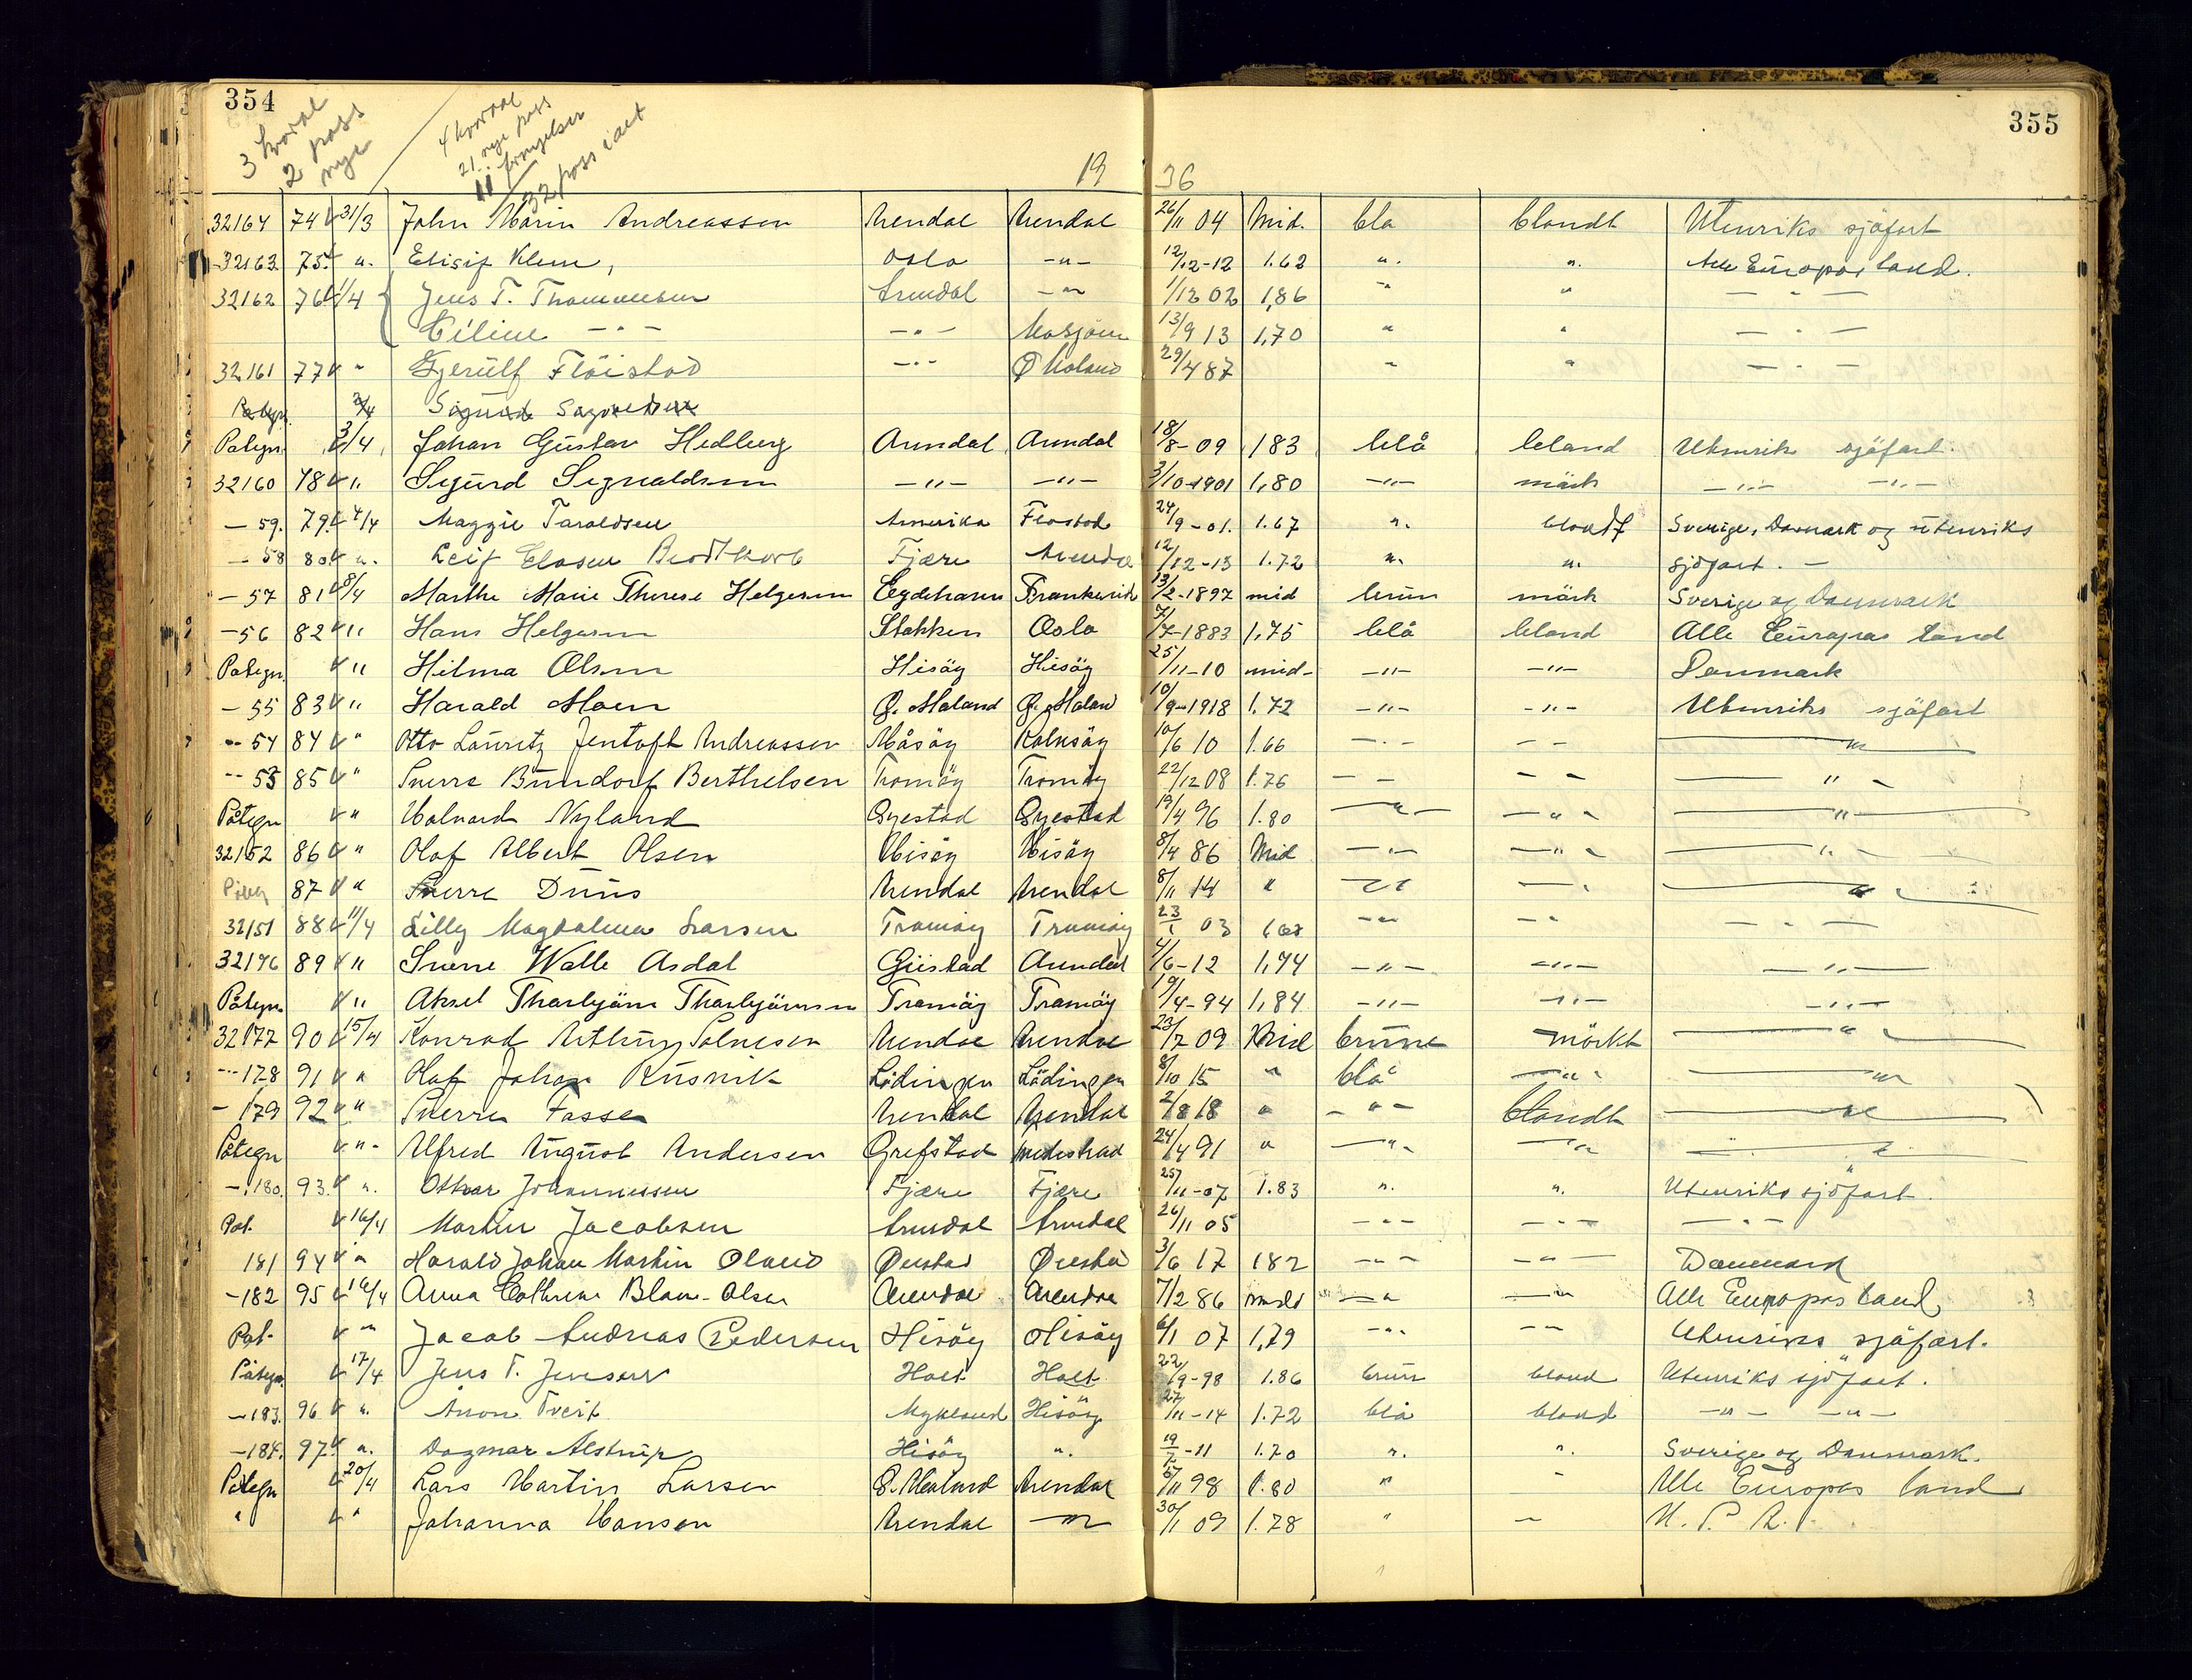 354
355
3 kvartal
2 pass
nye
21 nye pass
11 fornyelser
32 pass i alt
19 36
32164 74 31/3 John Marin Andreassen Arendal Arendal 26/11 04 Mid. blå blondt Utenriks sjöfart
32163 75 " Elisif Klem, Oslo -"- 12/12-12 1.62 " " Alle Europas land.
32162 76 1/4 Jens T. Thommesen Arendal -"- 1/12 02 1,86 " " - " -
Céline - " - - " - Mosjöen 13/9 13 1,70 " " - " -
32161 77 " Gjerülf Flöistad - " - Ø Moland 29/4 87 " " - " -
Påtegn 3/4 Sigurd
Påtegn. 3/4 Johan Gustav Hedberg Arendal Arendal 18/8-09 183 blå blond Utenriks sjöfart.
32160 78 " Sigurd Sigvaldsen -"- -"- 3/10-1901 1,80 -"- mörk -"- -"-
- 59. 79. 7/4 Maggie Taraldsen Amerika Flostad 24/9-01. 1.67 ". blondt Sverige, Danmark og utenriks
- 58 80 ". Leif Closen Brodtkorb Fjære Arendal 12/12-13 1.72 ". ". sjöfart. -
- 57 81 8/4 Marthe Marie Therese Helgesen Eydehavn Frankerik 13/2-1897 mid brun mörk Sverige og Danmark
- 56 82 " Hans Helgesen Stokken Oslo 7/7-1883 1,75 blå blond Alle Europas land
Påtegn. " Hilma Olsen Hisöy Hisöy 25/11-10 mid- -"- -"- Danmark
- 55 83 " Harald Moen Ø. Moland Ø. Moland 10/9-1918 1.72 -"- -"- Utenriks sjöfart
- 54 84 " Otto Lauritz Jentoft Andreassen Måsöy Kolusöy 10/6 10 1.66 - " - - - "
- 53 85 " Sverre Bundorf Berthelsen Tromöy Tromöy 22/12 08 1.76 - - - - - " -
Påtegn " Halvard Nyland Øyestad Øyestad 19/4 96 1.80 - " - - " - "
32152 86 " Olaf Albert Olsen Hisöy Hisöy 8/4 86 Mid - " - - " - - " -
87 " Sverre Duus Arendal Arendal 8/11 14 " - " - " "
32151 88 11/4 Lilly Magdalena Larsen Tromöy Tromöy 23/1 03 - " - " - " -
32176 89 " Sverre Walle Asdal Giistad Arendal 4/6-12 1,74 -"- -"- -"-
Påtegn. " Aksel Thorbjörn Thorbjörnsen Tromöy Tromöy 19/4-94 1,84 -"- -"- -"-
32177 90 15/4 Konrad Arthur Salvesen Arendal Arendal 23/7 09 Mid brune mörkt - " -
- 178 91 " Olaf Johan Rusnik Lödingen Lödingen 8/10 15 " blå - " - "
- 179 92 " Sverre Fosse Arendal Arendal 2/8 18 " - " - blondt "
Påtegn " Alfred August Andersen Grefstad 24/4 91 " - " - - "
- 180. 93. ". Othar Johannessen Fjære Fjære 25/11-07 1.83 ". ". Utenriks sjöfart.
Påt. 16/4 Martin Jacobsen Arendal Arendal 26/11 05 - " - - " - - " -
181 94 " Harald Johan Martin Oland Øiestad Øiestad 3/6 17 182 - " - - " - Danmark
- 182 95 16/4 Anna Cathrine Blom-Olsen Arendal Arendal 7/12 86 midd - " - " Alle Europas land,
Påt. " Jacob Andreas Pedersen Hisöy Hisöy 6/1 07 1,79 - " - - " Utenriks sjöfart.
Påtegn. 17/4 Jens T. Jensen Holt Holt 22/9-98 1.86 brun blond Utenriks sjöfart.
- 183. 96 ". Anon Tveit Mykland Hisöy 27/11-14 1.72 blå blond - " - - " -
- 184. 97. ". Dagmar Alstrup Hisöy ". 19/7-11 1.70 ". ". Sverige og Danmark.
Påtegn 20/4 Lars Martin Larsen Ø. Moland Arendal 11 98 1.80 " - Alle Europas land
" " Johanna Hansen Arendal " 30/1 09 1.78 " - U. S. A.